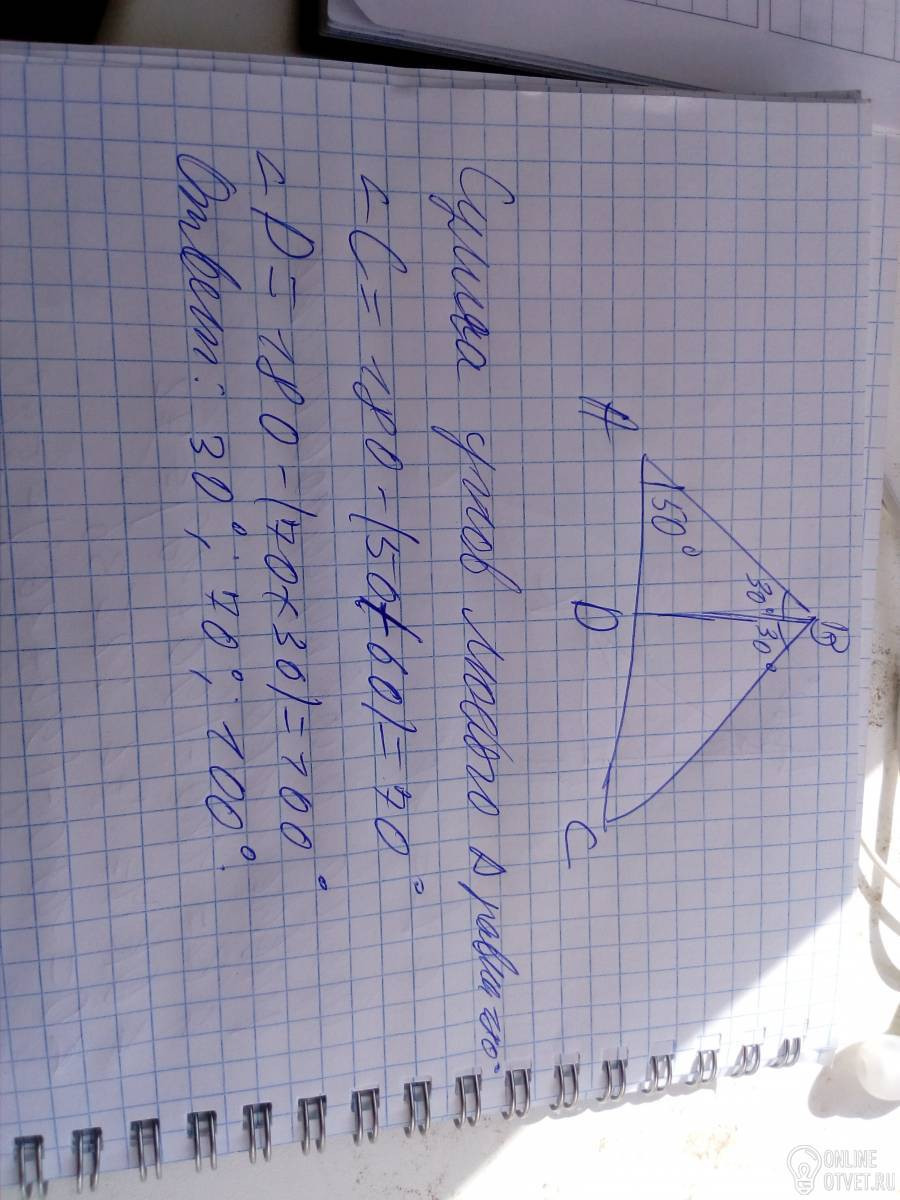 B
30° 30°
50°
A D C
Сумма углов любого Δ равна 180°
∠C = 180 - (50+60) = 70°
∠D = 180 - (70+30) = 100°
Ответ: 30°; 70°; 100°.
ONLINE
OTVET.RU